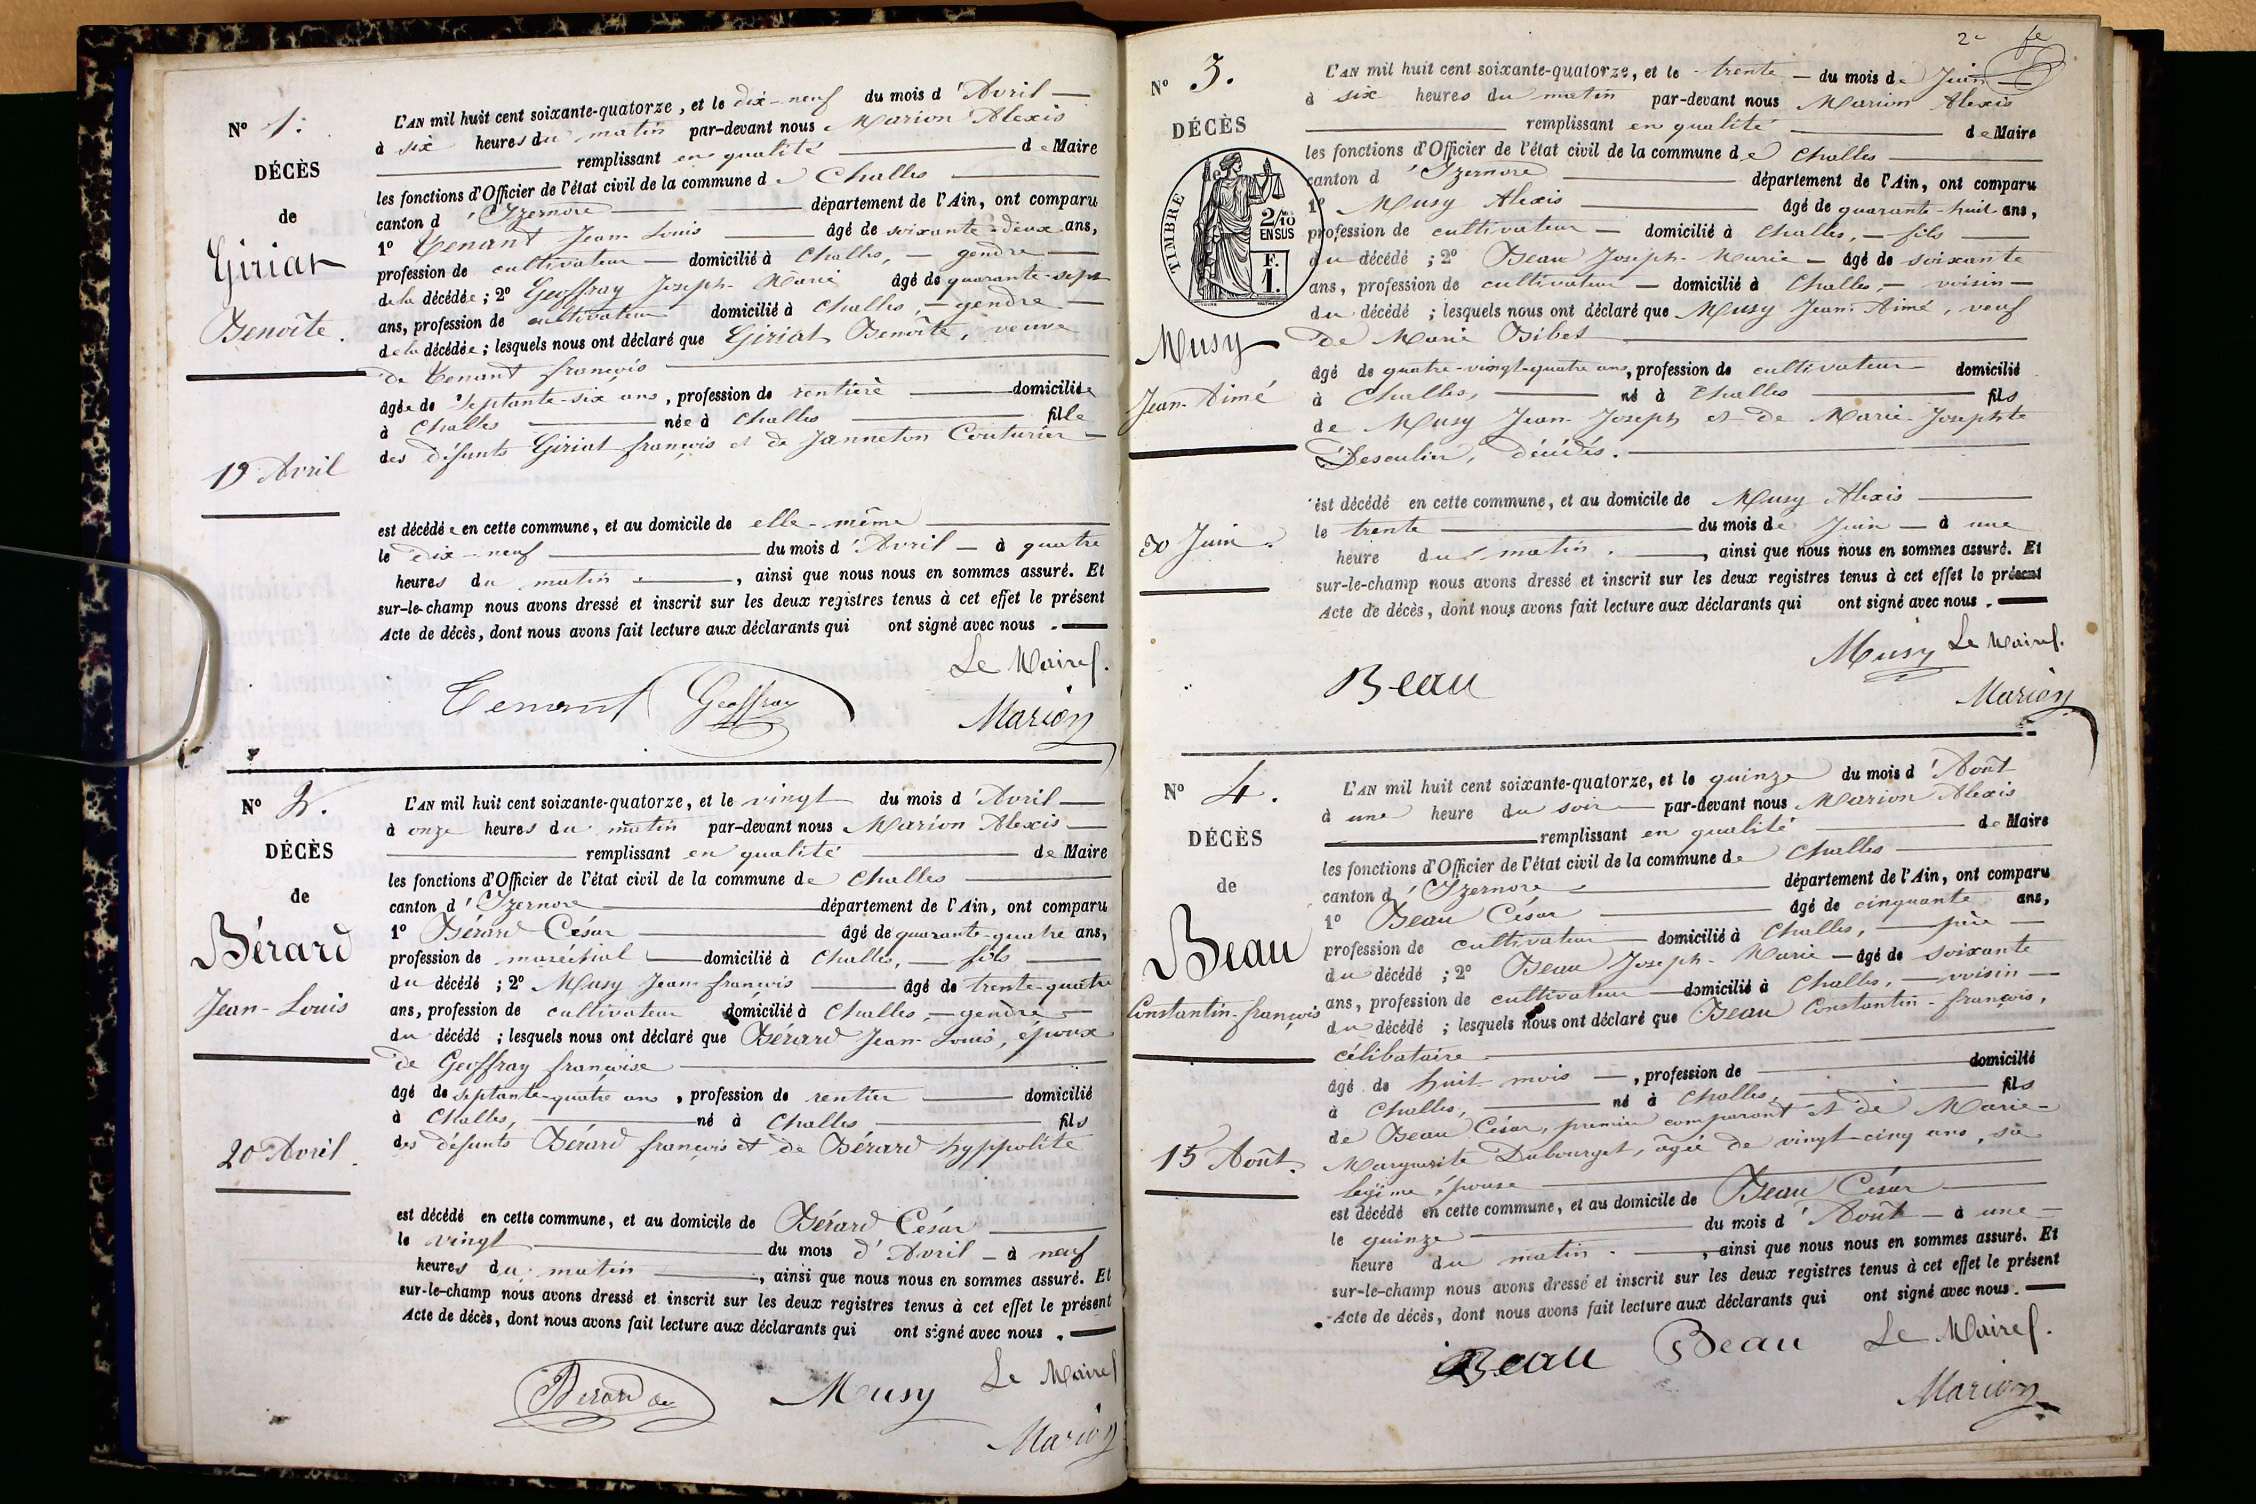 Nº 1.
DÉCÈS
de
Giriat
Benoîte.
19 Avril
L'AN mil huit cent soixante-quatorze, et le dix-neuf du mois d'Avril
à six heures du matin par-devant nous Marion Alexis
remplissant en qualité de Maire
les fonctions d'Officier de l'état civil de la commune de Challes
canton d'Izernore département de l'Ain, ont comparu
1º Tenant Jean Louis âgé de soixante-deux ans,
profession de cultivateur domicilié à Challes, gendre
de la décédée ; 2º Geoffray Joseph-Marie âgé de quarante-sept
ans, profession de cultivateur domicilié à Challes, gendre
de la décédée ; lesquels nous ont déclaré que Giriat Benoîte, veuve
de Tenant françois
âgée de septante-six ans, profession de rentière domiciliée
à Challes née à Challes fille
des défunts Giriat françois et de Janneton Couturier
est décédée en cette commune, et au domicile de elle-même
le dix-neuf du mois d'Avril à quatre
heures du matin, ainsi que nous nous en sommes assuré. Et
sur-le-champ nous avons dressé et inscrit sur les deux registres tenus à cet effet le présent
Acte de décès, dont nous avons fait lecture aux déclarants qui ont signé avec nous.
Le Maire
Tenant Geoffray Marion
Nº 2.
DÉCÈS
de
Bérard
Jean-Louis
20 Avril
L'AN mil huit cent soixante-quatorze, et le vingt du mois d'Avril
à onze heures du matin par-devant nous Marion Alexis
remplissant en qualité de Maire
les fonctions d'Officier de l'état civil de la commune de Challes
canton d'Izernore département de l'Ain, ont comparu
1º Bérard César âgé de quarante-quatre ans,
profession de maréchal domicilié à Challes, fils
du décédé ; 2º Musy Jean françois âgé de trente-quatre
ans, profession de cultivateur domicilié à Challes, gendre
du décédé ; lesquels nous ont déclaré que Bérard Jean-Louis, époux
de Geoffray françoise
âgé de septante-quatre ans, profession de rentier domicilié
à Challes, né à Challes fils
des défunts Bérard françois et de Bérard hyppolite
est décédé en cette commune, et au domicile de Bérard César
le vingt du mois d'Avril à neuf
heures du matin, ainsi que nous nous en sommes assuré. Et
sur-le-champ nous avons dressé et inscrit sur les deux registres tenus à cet effet le présent
Acte de décès, dont nous avons fait lecture aux déclarants qui ont signé avec nous.
Le Maire
Bérard Musy
Marion
2e fe
Nº 3.
DÉCÈS
de
TIMBRE
2/10
EN SUS
F.
1.
Musy
Jean-Aimé
30 Juin.
L'AN mil huit cent soixante-quatorze, et le trente du mois de Juin
à six heures du matin par-devant nous Marion Alexis
remplissant en qualité de Maire
les fonctions d'Officier de l'état civil de la commune de Challes
canton d'Izernore département de l'Ain, ont comparu
1º Musy Alexis âgé de quarante-huit ans,
profession de cultivateur domicilié à Challes, fils
du décédé ; 2º Beau Joseph-Marie âgé de soixante
ans, profession de cultivateur domicilié à Challes, voisin
du décédé ; lesquels nous ont déclaré que Musy Jean-Aimé, veuf
de Marie Bibet
âgé de quatre-vingt-quatre ans, profession de cultivateur domicilié
à Challes, né à Challes fils
de Musy Jean-Joseph et de Marie-Josephte
Desculier, décédés.
est décédé en cette commune, et au domicile de Musy Alexis
le trente du mois de Juin à une
heure du matin, ainsi que nous nous en sommes assuré. Et
sur-le-champ nous avons dressé et inscrit sur les deux registres tenus à cet effet le présent
Acte de décès, dont nous avons fait lecture aux déclarants qui ont signé avec nous.
Beau Musy Le Maire
Marion
Nº 4.
DÉCÈS
de
Beau
Constantin-françois
15 Août.
L'AN mil huit cent soixante-quatorze, et le quinze du mois d'Août
à une heure du soir par-devant nous Marion Alexis
remplissant en qualité de Maire
les fonctions d'Officier de l'état civil de la commune de Challes
canton d'Izernore département de l'Ain, ont comparu
1º Beau César âgé de cinquante ans,
profession de cultivateur domicilié à Challes, père
du décédé ; 2º Beau Joseph-Marie âgé de soixante
ans, profession de cultivateur domicilié à Challes, voisin
du décédé ; lesquels nous ont déclaré que Beau Constantin-françois,
célibataire
âgé de huit mois, profession de domicilié
à Challes, né à Challes, fils
de Beau César, premier comparant et de Marie-
Marguerite Dubourget, âgée de vingt-cinq ans, sa
légime épouse
est décédé en cette commune, et au domicile de Beau César
le quinze du mois d'Août à une
heure du matin, ainsi que nous nous en sommes assuré. Et
sur-le-champ nous avons dressé et inscrit sur les deux registres tenus à cet effet le présent
Acte de décès, dont nous avons fait lecture aux déclarants qui ont signé avec nous.
Beau Beau Le Maire
Marion